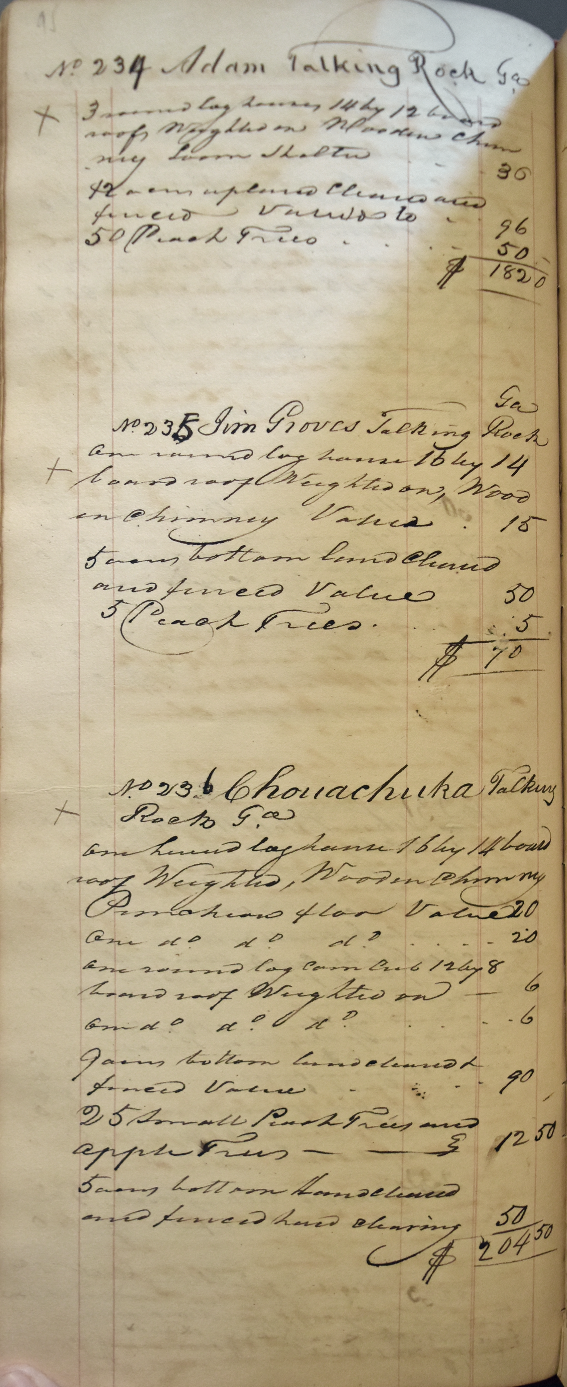 No 234 Adam Talking Rock Ga
+ 3 round log houses 14 by 12 board
roofs Weighted on Wooden Chim
ney Loom Shelter . . 36
12 acres upland Cleared and
fenced Valued to . 96
50 Peach Trees . . . . 50
$ 182 0
Ga
No 235 Jim Proves Talking Rock
+ one round log house 16 by 14
board roof Weighted on, Wood
en Chimney Value . 15
5 acres bottom land Cleared
and fenced Value 50
5 Peach Trees . . . . 5
$ 70
No 236 Chouachuka Talking
+ Rock Ga
one hewed log house 16 by 14 board
roof Weighted, Wooden Chimney
Puncheon floor Value 20
one do do do . . . . 20
one round log corn Crib 12 by 8
board roof Weighted on — 6
one do do do . . . . 6
9 acres bottom land cleared &
fenced Value 90
25 Small Peach Trees and
apple Trees — — 12 50
5 acres bottom land cleared
and fenced hard clearing 50
$ 204 50